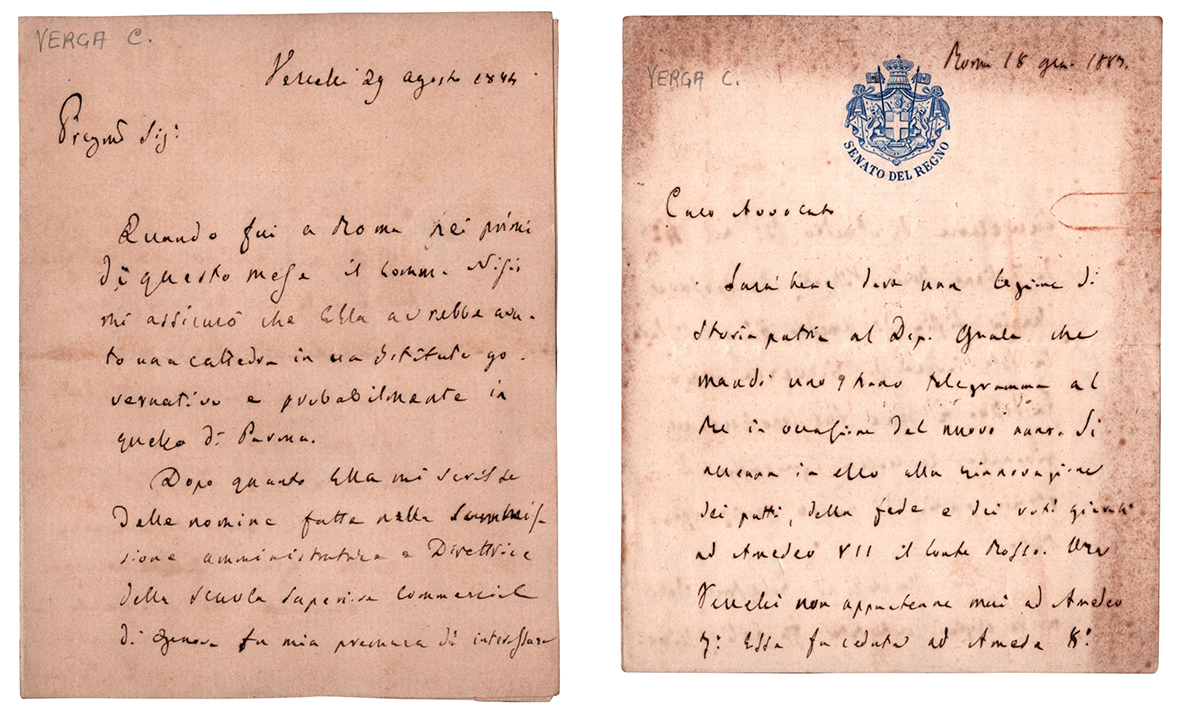 VERGA C.
Vercelli 29 agosto 1884
Pregmo Sigr
Quando fui a Roma nei primi
di questo mese il Comm. Nisio
mi assicurò che Ella avrebbe avu-
to una cattedra in un Istituto go-
vernativo e probabilmente in
quello di Parma.
Dopo quanto Ella mi scrisse
delle nomine fatte nella Commis-
sione amministratrice e Direttrice
della Scuola Superiore Commerciale
di Genova fu mia premura di interessare
VERGA C.
Roma 18 gen. 1883.
SENATO DEL REGNO
Caro Avvocato
Sarà bene dare una lezione di
Storia patria al Dep. Guala che
mandi uno strano telegramma al
Re in occasione del nuovo anno. Si
accenna in esso alla rinnovazione
dei patti, della fede e dei voti giurati
ad Amedeo VII il Conte Rosso. Ora
Vercelli non appartenne mai ad Amedeo
7º Essa fu ceduta ad Amedeo 8º